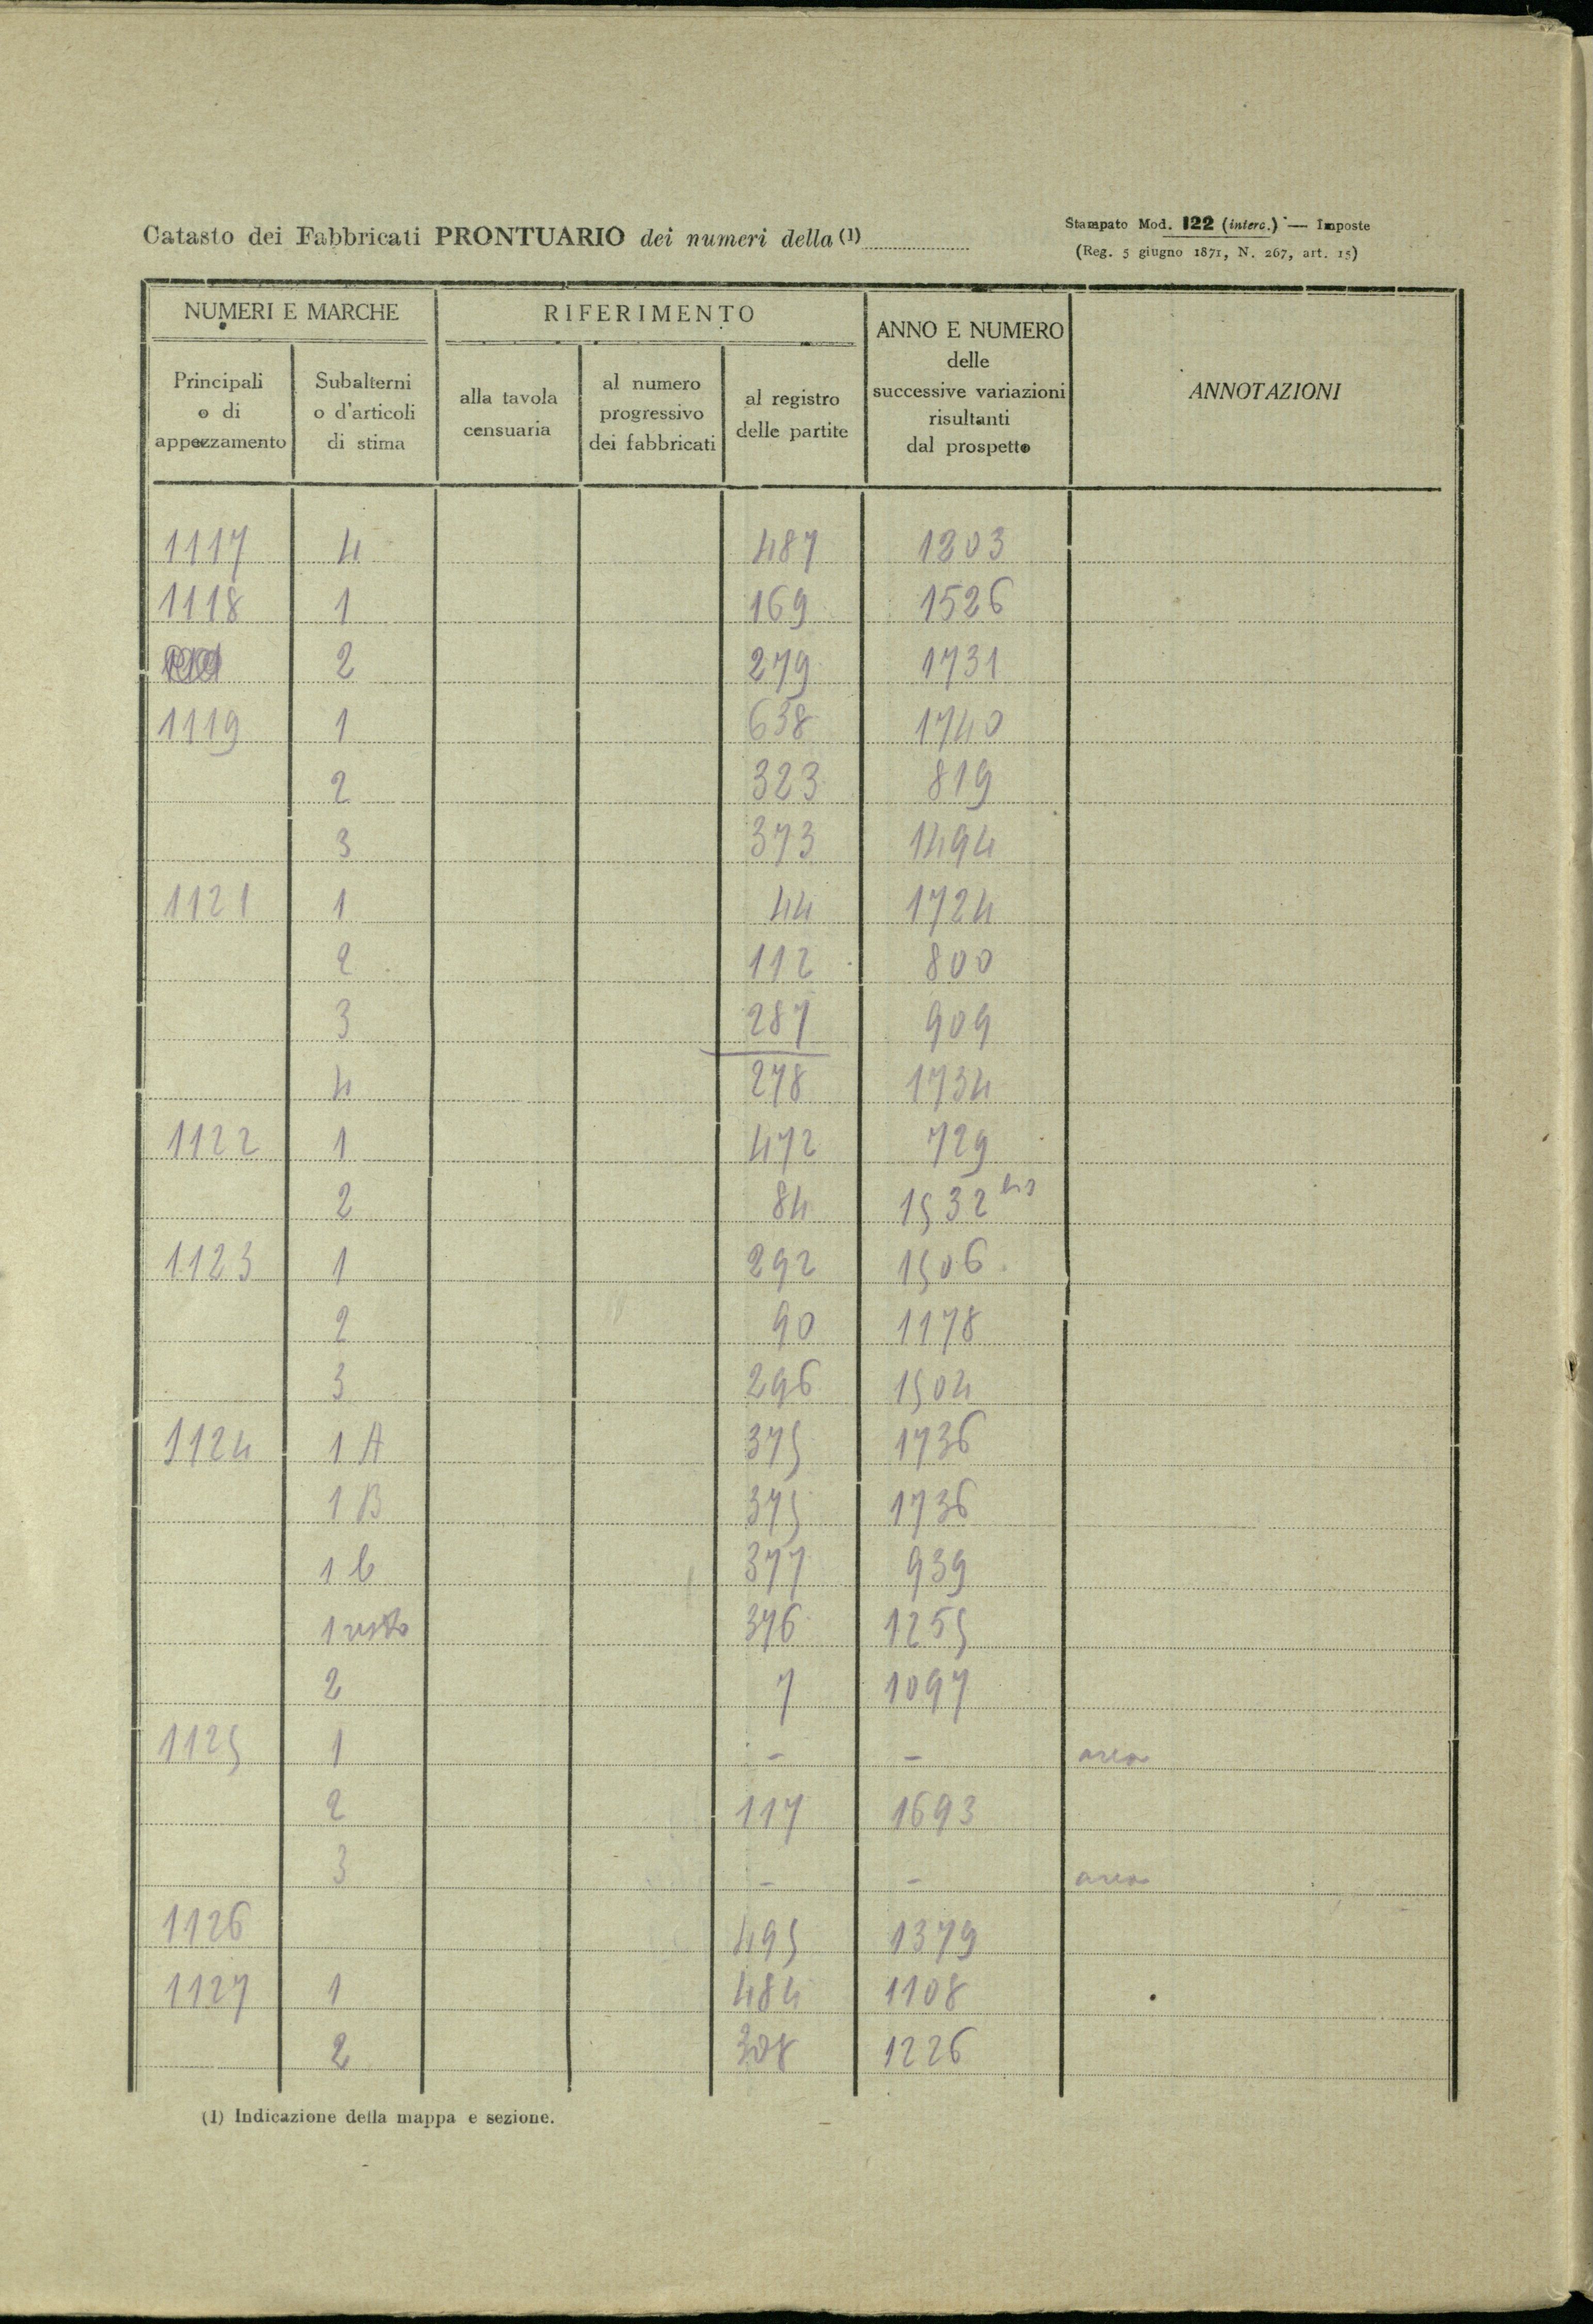 Catasto dei Fabbricati PRONTUARIO dei numeri della (1)
Stampato Mod. 122 (interc.) — Imposte
(Reg. 5 giugno 1871, N. 267, art. 15)
NUMERI E MARCHE
RIFERIMENTO
ANNO E NUMERO
delle
successive variazioni
risultanti
dal prospetto
ANNOTAZIONI
Principali
o di
appezzamento
Subalterni
o d'articoli
di stima
alla tavola
censuaria
al numero
progressivo
dei fabbricati
al registro
delle partite
1117 4 487 1203
1118 1 169 1526
2 279 1731
1119 1 638 1740
2 323 819
3 373 1494
1121 1 44 1724
2 112 800
3 287 909
4 278 1734
1122 1 472 729
2 84 1532 bis
1123 1 292 1506
2 90 1178
3 296 1504
1124 1 A 375 1736
1 B 375 1736
1 C 377 939
1 resto 376 1255
2 7 1097
1125 1 – – area
2 117 1693
3 – – area
1126 495 1379
1127 1 484 1108
2 308 1226
(1) Indicazione della mappa e sezione.